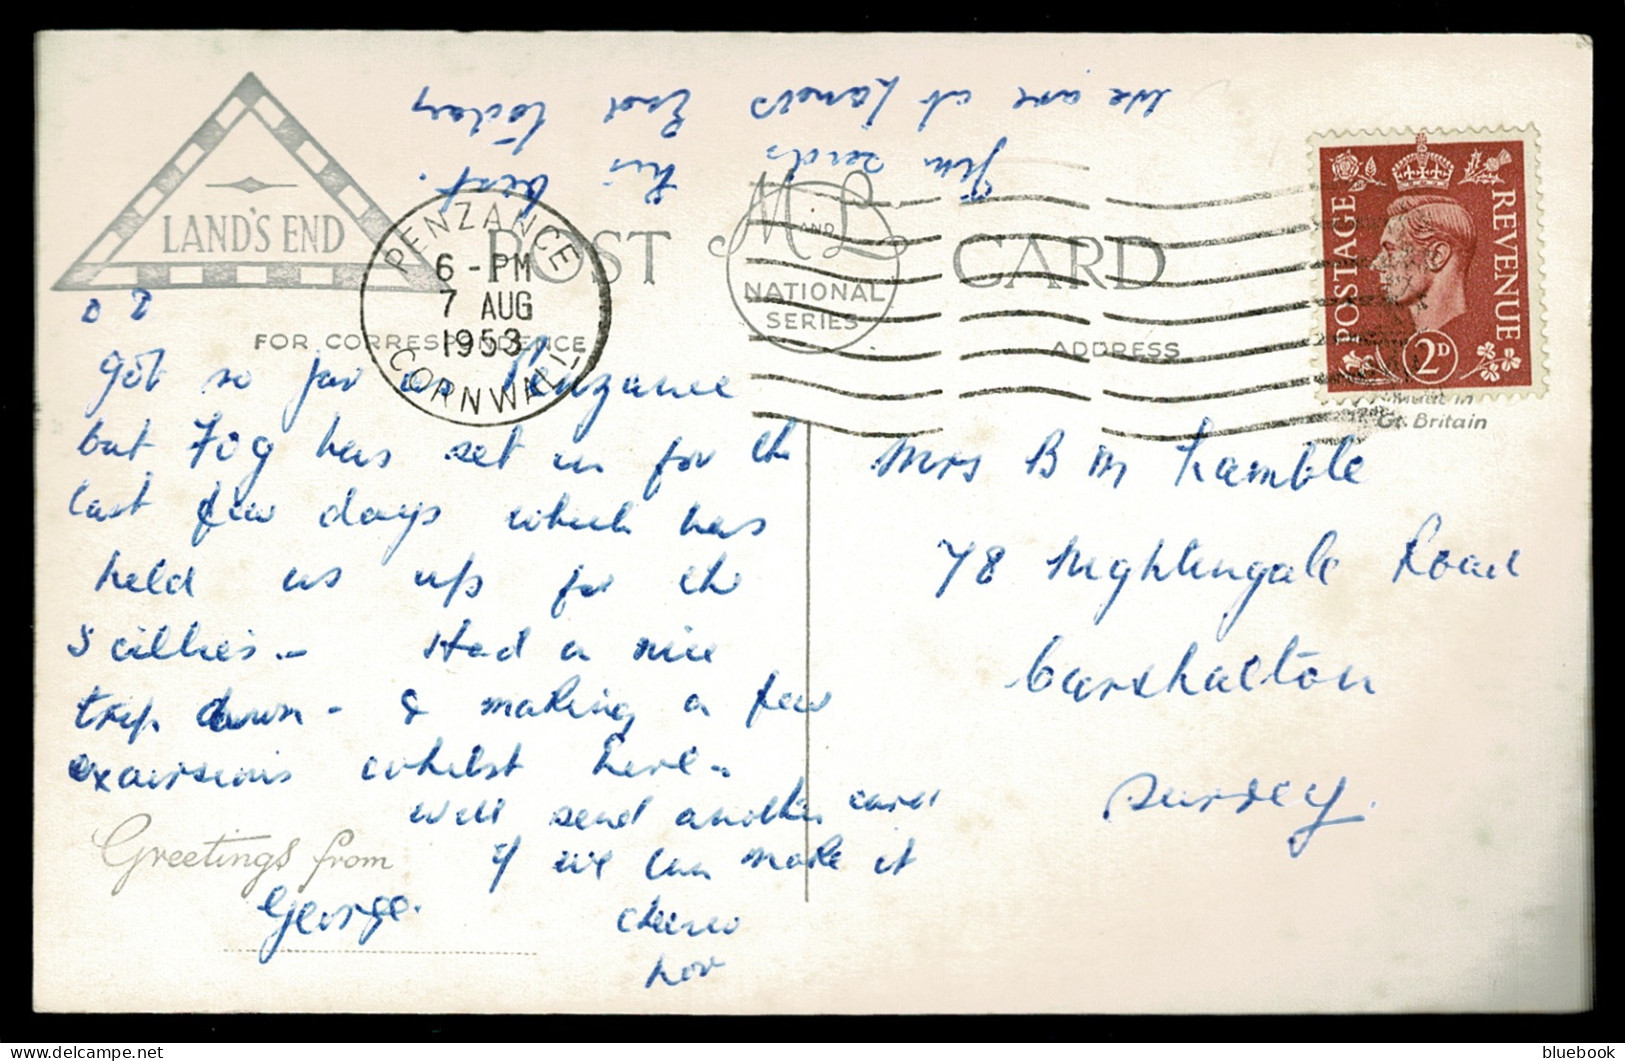 We are at Lands End today
Jim sends his best.
LAND'S END
POST CARD
M AND L
NATIONAL
SERIES
PENZANCE
6 - PM
7 AUG
1953
CORNWALL
FOR CORRESPONDENCE
ADDRESS
POSTAGE
REVENUE
2D
in
Gt. Britain
Got so far as Penzance
but Fog has set in for the
last few days which has
held us up for the
Scillies - Had a nice
trip down - & making a few
excursions whilst here -
Will send another card
if we can make it
Cheerio
George.
Greetings from
Mrs B M
78 Nightingale Road
Carshalton
Surrey.
bluebook